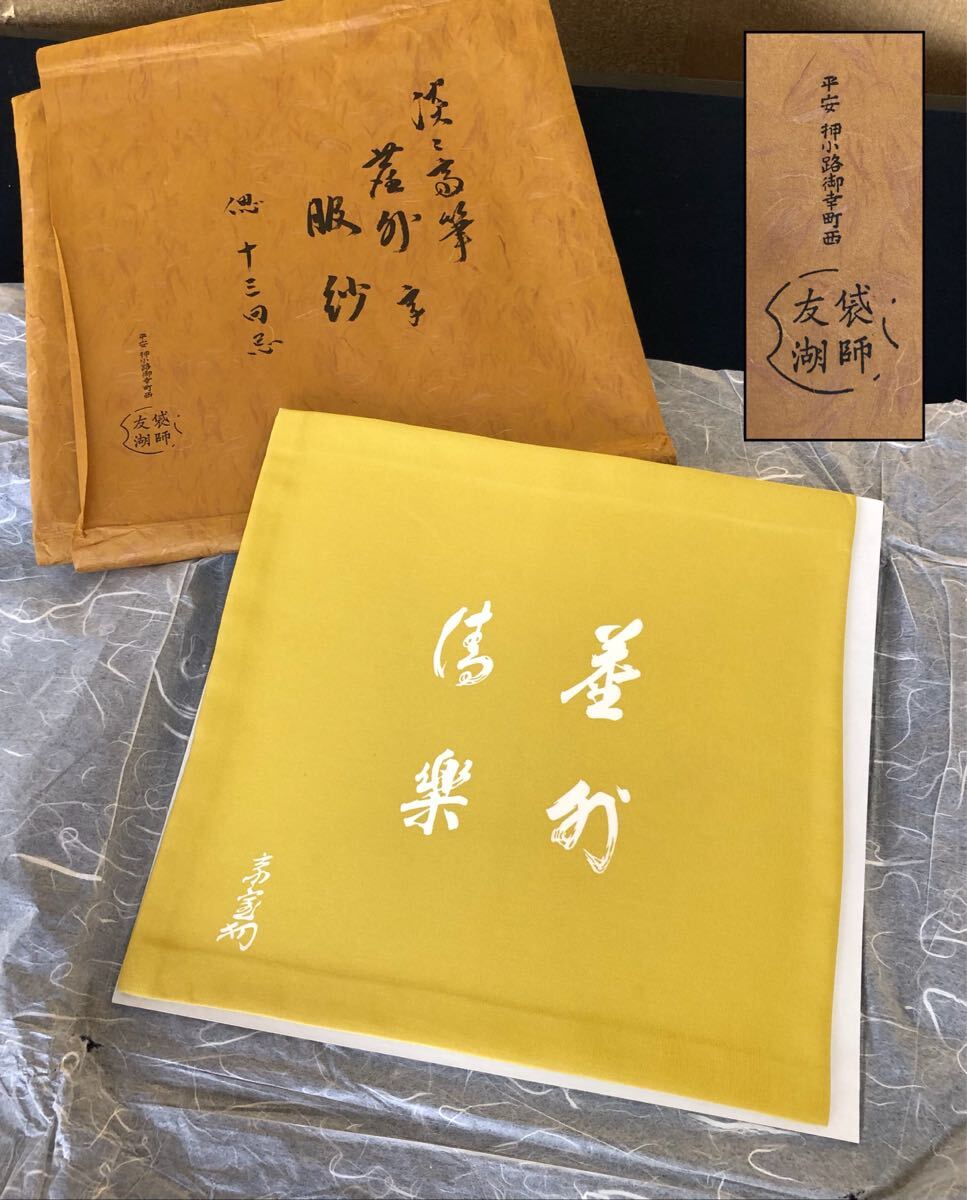 淡々斎筆
塵外 字
服紗
偲 十三回忌
平安 押小路御幸町西
袋師
友湖
平安 押小路御幸町西
袋師
友湖
塵外
清樂
宗室